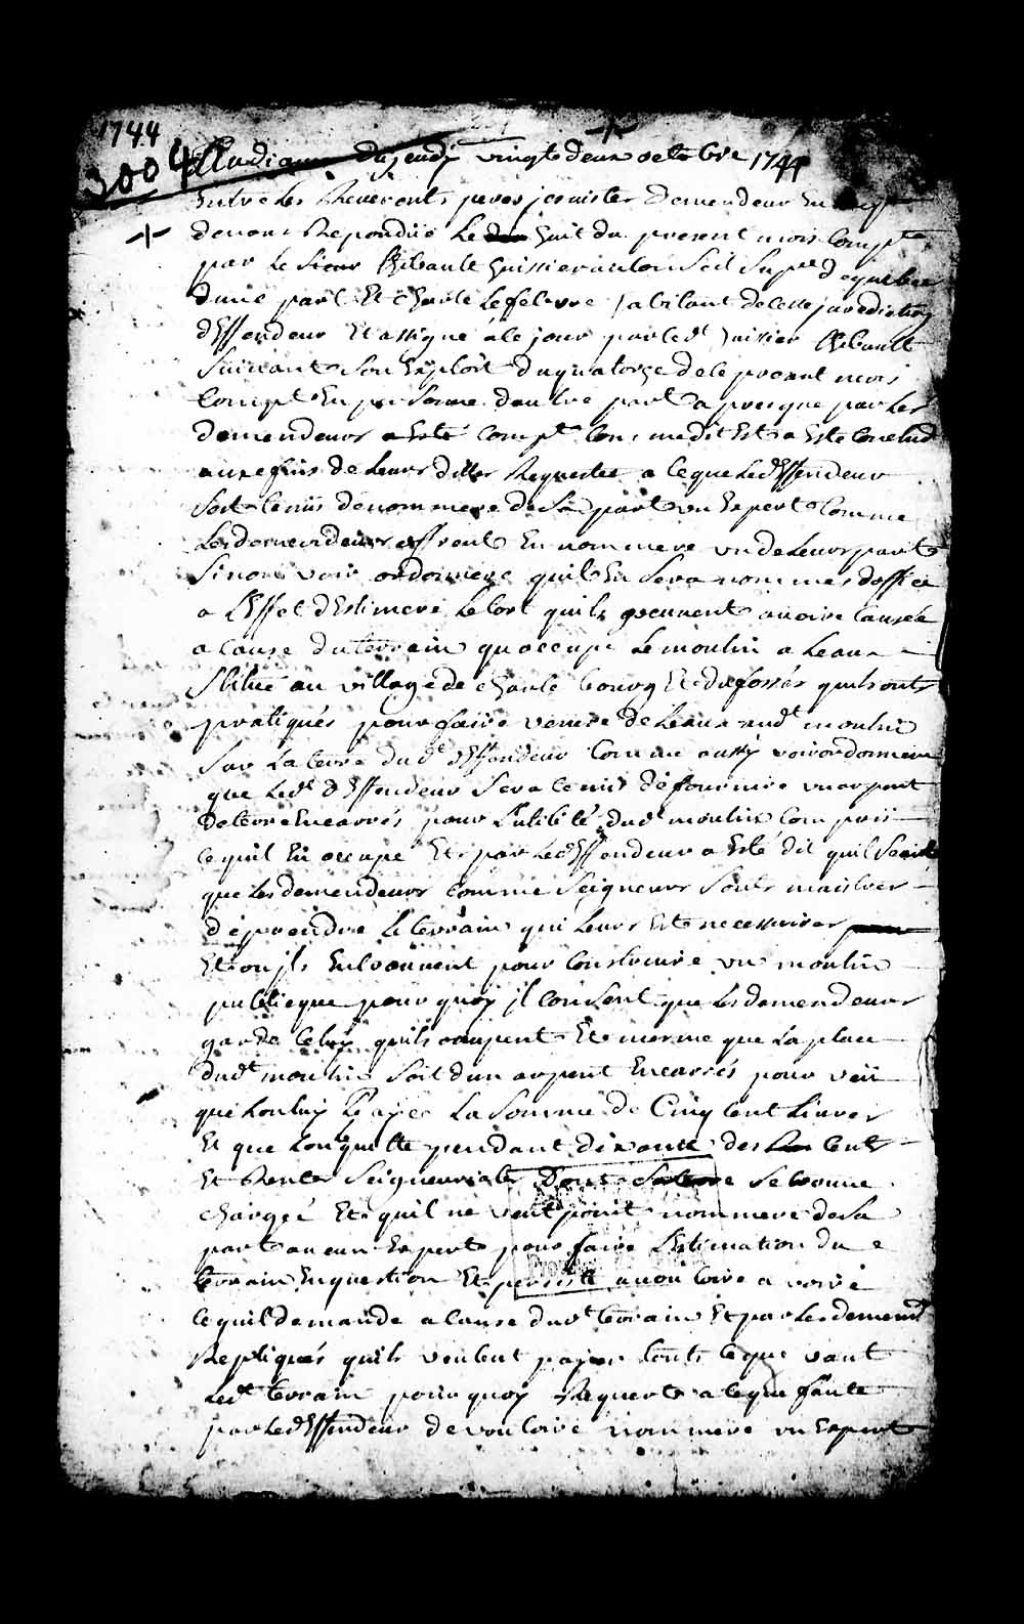 1744
3004 Audiance du jeudy vingt deux octobre 1744
Entre les Reverents peres jesuistes Demendeur En
de nous Repondüe le huit du present mois Compt
par le sieur Thibault huissier au Conseil Supr de quebec
dune part Et charle Lefebvre habitant de cette jurediction
dEffendeur Et assigné a ce jour par led huissier Thibault
suivant son Exploit du quatorze de ce present mois
Compt En personne dautre part apres que par les
demendeurs a Esté Compt Comme dit Est a Esté Conclud
aux fins de leurs dittes Requestes a ce que led dEffendeur
soit tenüs de nommere de sa part un Expert Comme
les demendeurs offrent En nommere un de leurs part
sinon voir ordonnere quil En sera nommés doffice
a lEffet dEstimere le tort quils peuvent avoire Causée
a Cause du terrain quoccupe le moulin a leau
Sitüé au village de charle bourg Et du fossés quils onts
pratiqués pour faire venire de leaux aud moulin
sur la terre dud dEffendeur Comme aussy voir ordonnere
que led dEffendeur sera tenüs de fournire un arpent
de terre En carrés pour lutilité dud moulin Compris
ce quil En occupe Et par led dEffendeur a Esté dit quil scait
que les demendeurs Comme Seigneurs sonts maistres
de prendre le terrain qui leurs Est necessaires
Et ou jls En trouvent pour Construire un moulin
publicque pour quoy jl Consent que les demendeurs
garde celuy quils ocupent Et mesme que la place
dud moulin soit dun arpent En carrés pour veu
que lon luy paÿee la somme de Cinq Cent livres
Et que lon quitte pendant dix ans des Cents
Et Rentes Seigneuriale Dont sa terre se trouve
chargée Et quil ne veut point nommere de sa
part aucun Experts pour faire lEstimation du
terrain En question Et persiste a vouloire avoire
ce quil demande a Cause dud terrain Et par les demend
Repliqués quils veulent payer touts ce que vaut
led terrain pour quoy Requert a ce que faute
par led dEffendeur de vouloire nommere un Expert